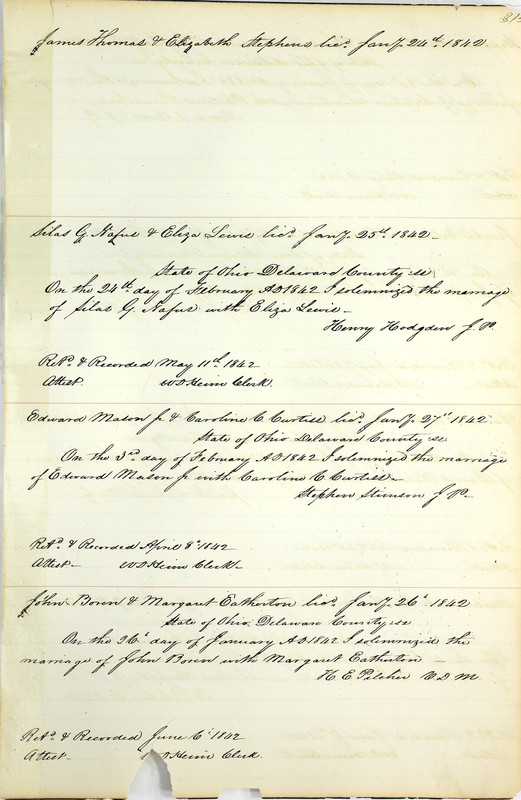 James Thomas & Elizabeth Stephens licd. Jany. 24th. 1842.
Silas G. Nafus & Eliza Lewis licd. Jany. 25th. 1842 –
State of Ohio Delaware County ss
On the 24th. day of February AD 1842 I solemnized the marriage
of Silas G. Nafus with Eliza Lewis –
Henry Hodgden J. P.
Retd. & Recorded May 11th. 1842
Attest. W D Heim Clerk.
Edward Mason Jr & Caroline C. Curtiss licd. Jany. 27th 1842
State of Ohio Delaware County ss
On the 3rd. day of February AD 1842 I solemnized the marriage
of Edward Mason Jr with Caroline C. Curtiss –
Stephen Stimson J P.
Retd. & Recorded April 8th. 1842
Attest – W D Heim Clerk –
John Born & Margaret Eatherton licd. Jany. 26th 1842
State of Ohio Delaware County ss
On the 26th day of January AD 1842 I solemnized the
marriage of John Born with Margaret Eatherton –
H. E. Pilcher V. D. M.
Retd. & Recorded June 6th 1842
Attest – D Heim Clerk.